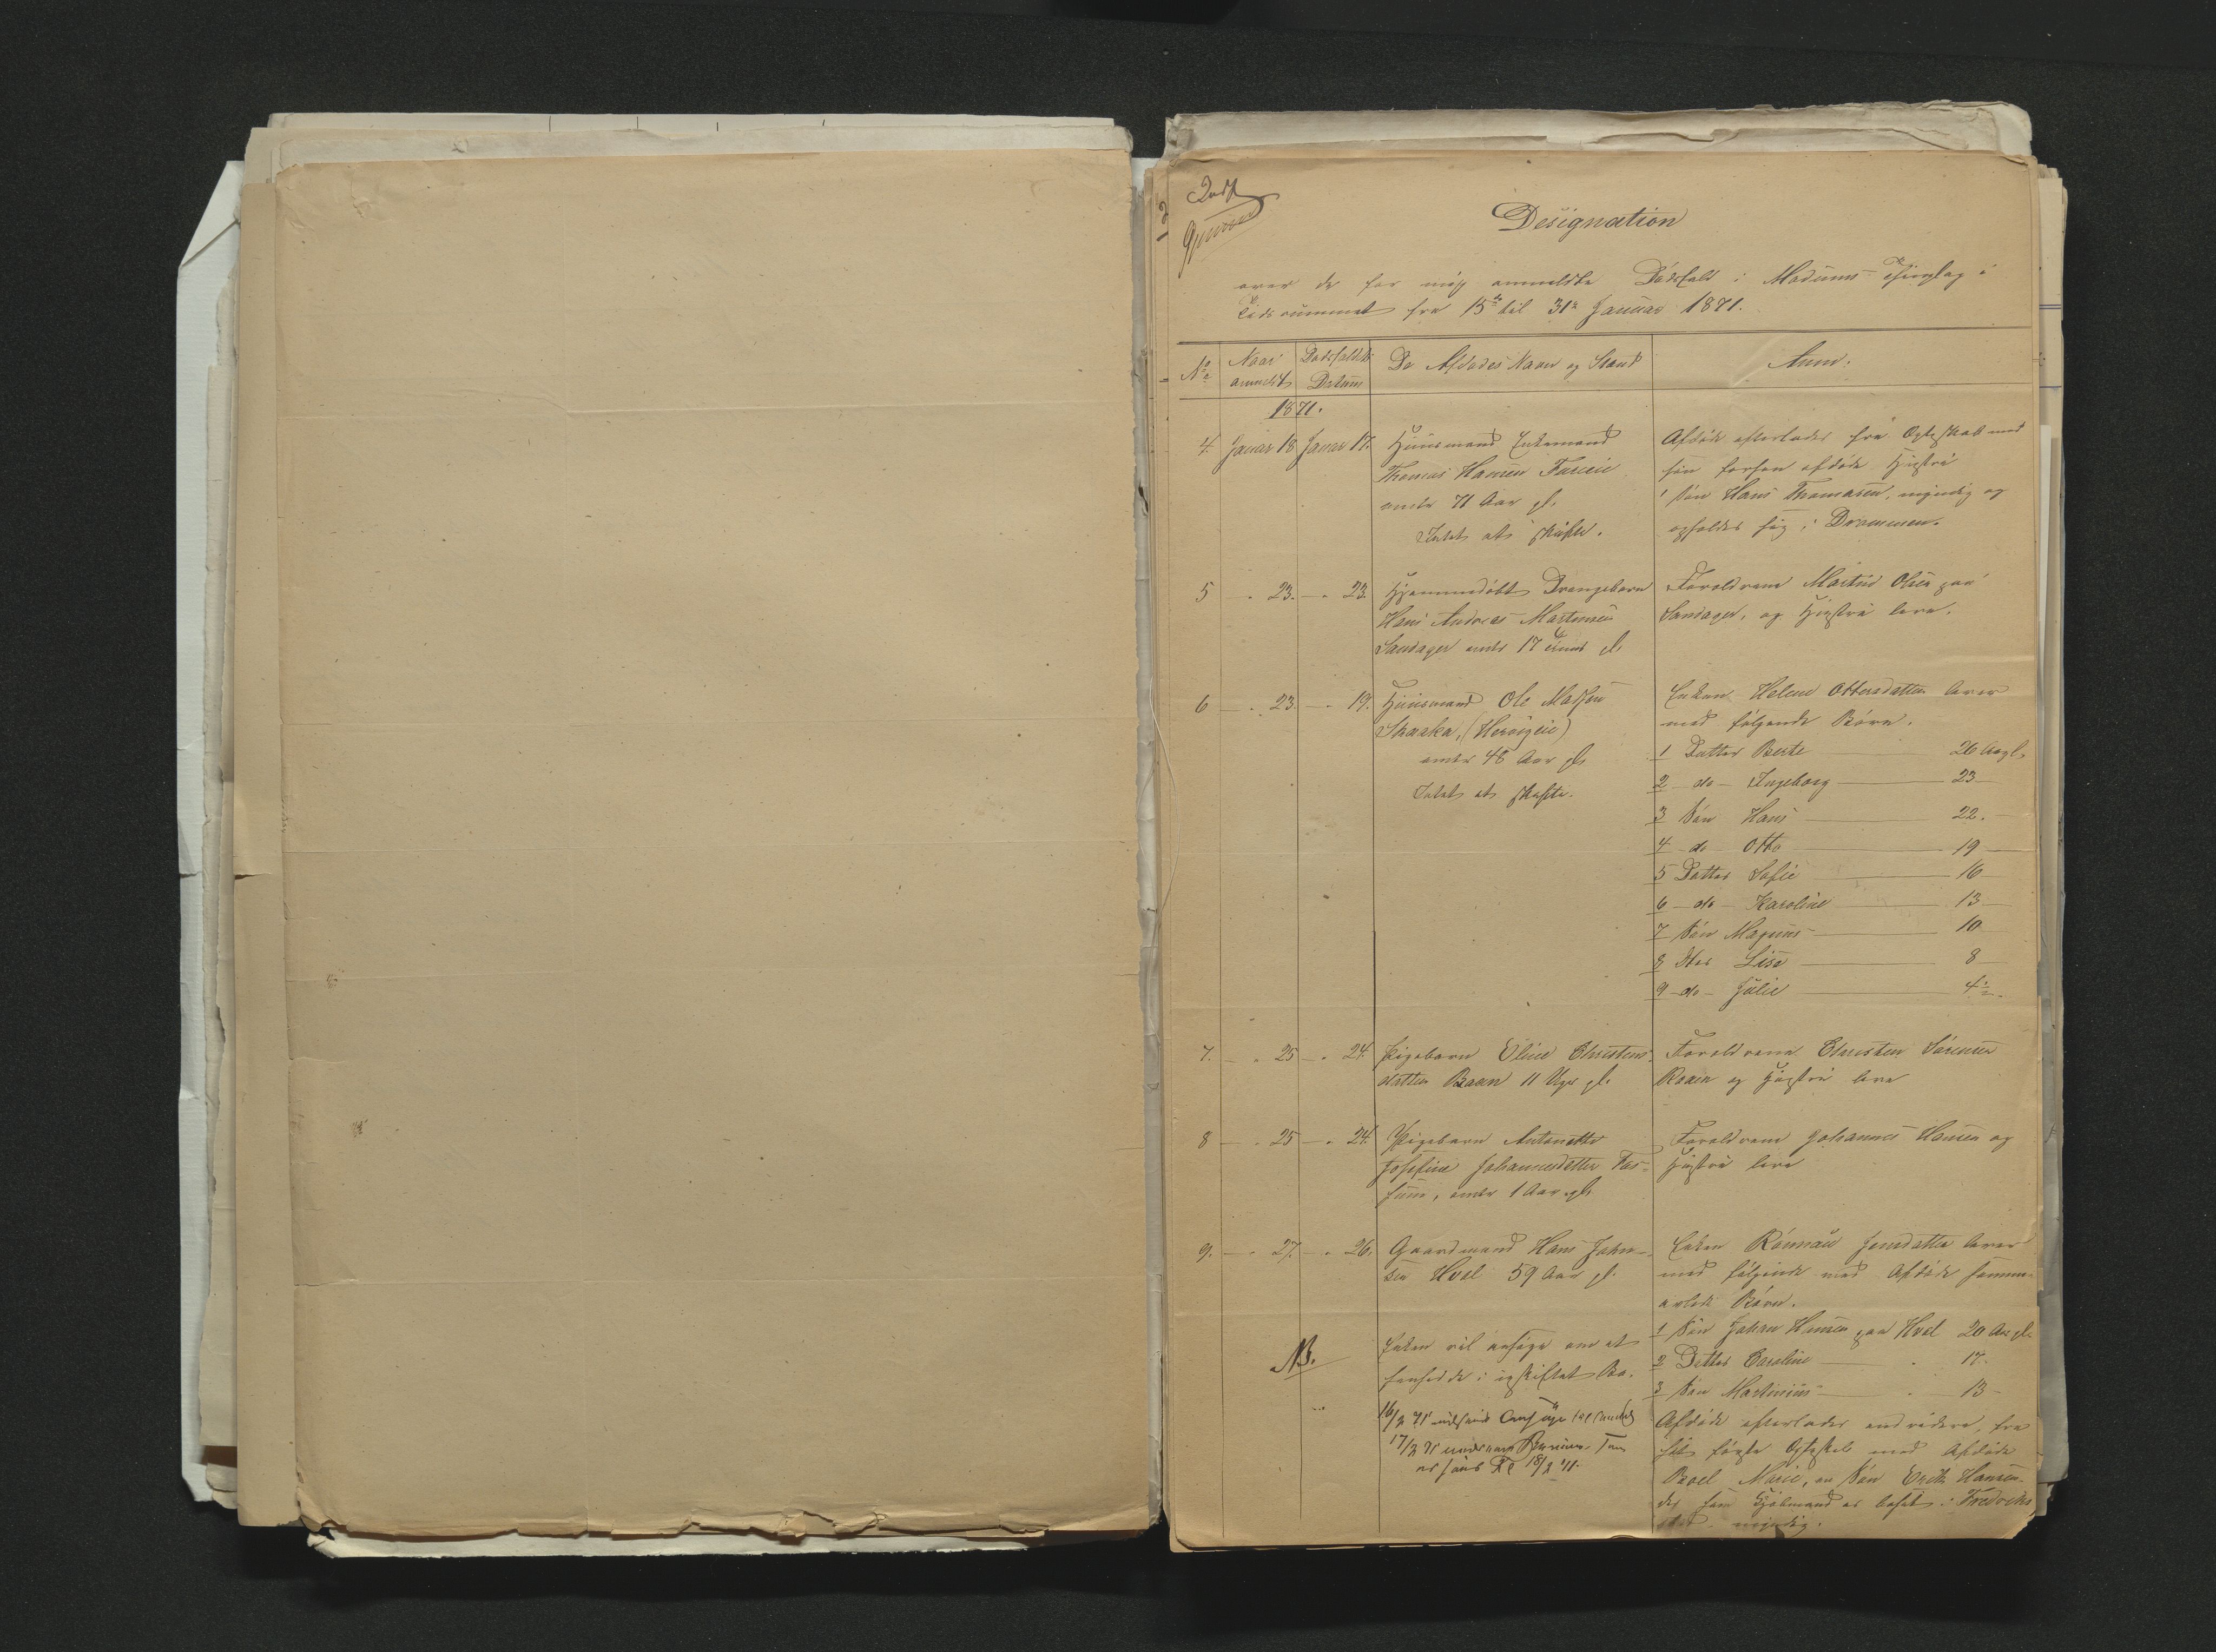 Designation
over de for mig anmeldte Dødsfald i Modums Thinglag i
Tidsrummet fra 15de til 31te Januar 1871.
No
Naar anmeldt
Dødsfaldets Datum
De Afdødes Navn og Stand
Anm:
1871.
4. Januar 18 Januar 17.
Huusmand Enkemand
Thomas Hansen
71 Aar gl.
Intet at skifte.
Afdøde efterlader fra Ægteskab med
sin forhen afdøde Hustru
1 Søn Hans Thomasen, myndig og
opholder sig i Drammen.
5 - " 23. - " 23.
Hjemmedøbt Drengebarn
Hans Andreas Martinsen
Sandager 17 Timer gl.
Forældrene Martin Olsen paa
Sandager, og Hustru leve.
6 - " 23. - " 19.
Huusmand Ole Madsen
Skarska,
48 Aar gl.
Intet at skifte.
Enken Helene Ottersdatter lever
med følgende Børn.
1 Datter Berte 26 Aar gl.
2 do Ingeborg 23
3 Søn Hans 22.
4 do Otto 19
5 Datter Sofie 16
6 do Karoline 13
7 Søn Magnus 10
8 Dtr Lise 8
9 do Julie 4½
7. - " 25 - " 24.
Pigebarn Oline Christens-
datter Braan 11 Uger gl.
Forældrene Christen Sørensen
Braan og Hustru leve
8 - " 25 - " 24.
Pigebarn Antonette
Josefine Johannesdatter Fos-
sum, 1 Aar gl.
Forældrene Johannes Hansen og
Hustru leve
9. - " 27. - " 26.
Gaardmand Hans John-
sen Hvel 59 Aar gl.
Enken Rønnau Jensdatter lever
med følgende med Afdøde sammen-
avlede Børn.
1 Søn Johan Hansen paa Hvel 20 Aar gl.
2 Datter Caroline " 17.
3 Søn Martinius " 13
NB.
Enken vil ansøge om at
hensidde i uskiftet Bo.
16/2 71
17/2 71
18/2 71.
Afdøde efterlader endvidere, fra
sit første Ægteskab med Afdøde
Boel Marie, en Søn Erik Hansen
der som Kjøbmand er bosat i Fredriks-
stad myndig.